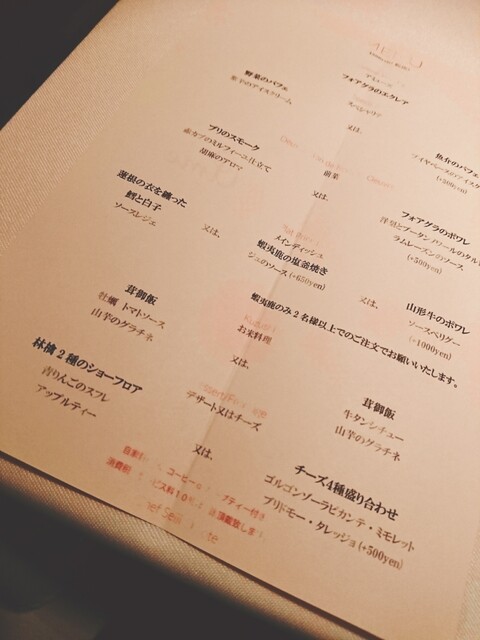 MENU
フォアグラのエクレア
スペシャリテ
野菜のパフェ
茄子のアイスクリーム
又は、
魚介のパフェ
(+500yen)
前菜
ブリのスモーク
赤カブのミルフィーユ仕立て
胡麻のアロマ
又は、
フォアグラのポワレ
ラムレーズンのソース
(+500yen)
メインディッシュ
蓮根の衣を纏った
鱈と白子
ソースレジェ
又は、
蝦夷鹿の塩釜焼き
ジュのソース(+650yen)
又は、
山形牛のポワレ
ソースペリグー
(+1000yen)
蝦夷鹿のみ2名様以上でのご注文でお願いいたします。
お米料理
茸御飯
牡蠣 トマトソース
山芋のグラチネ
又は、
茸御飯
牛タンシチュー
山芋のグラチネ
デザート又はチーズ
林檎2種のショーフロア
青りんごのスフレ
アップルティー
又は、
チーズ4種盛り合わせ
ゴルゴンゾーラピカンテ・ミモレット
ブリドモー・タレッジョ(+500yen)